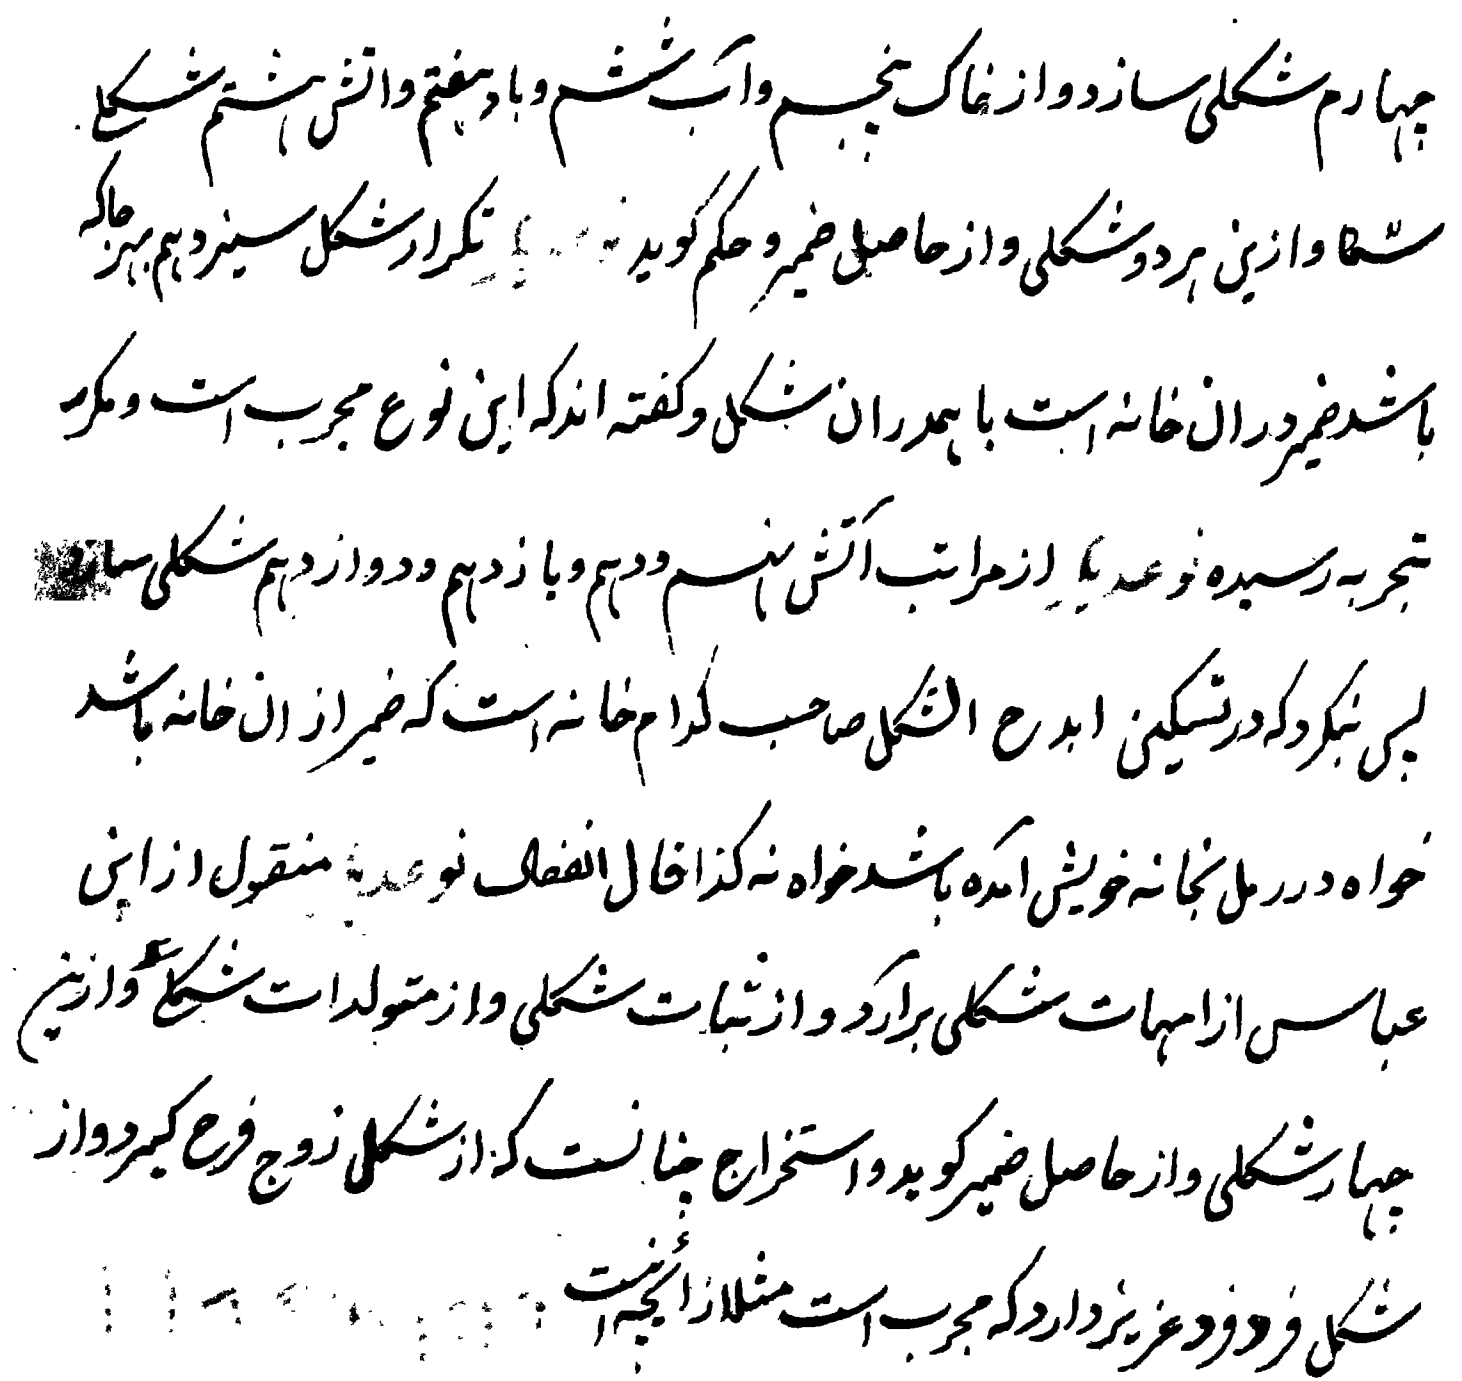 چهارم شکلی سازد و از خاک پنجم و آب ششم و باد هفتم و اتش هشتم شکلی
و ازین هر دو شکلی و از حاصل ضمیر و حکم کوید نوعدیکر تکرار شکل سیزدهم بهر جا که
باشد ضمیر در ان خانه است یا همدران شکل و کفته اند که این نوع مجرب است و مکرر
بتجربه رسیده نوعدیکر از مراتب آتش نهم و دهم و یازدهم و دوازدهم شکلی سازد
پس بنکرد که در تسکین ابدح الشکل صاحب کدام خانه است که ضمیر از ان خانه باشد
خواه در رمل بخانه خویش آمده باشد خواه نه کذا قال نوعدیکر منقول از ابن
عباس از امهات شکلی برآرد و از بنات شکلی و از متولدات شکلی و ازین
چهار شکلی و از حاصل ضمیر کوید و استخراج چنانست که از شکل زوج فرح کیرد و از
شکل فرد فرد عزیز دارد که مجرب است مثلا زائچه اینست